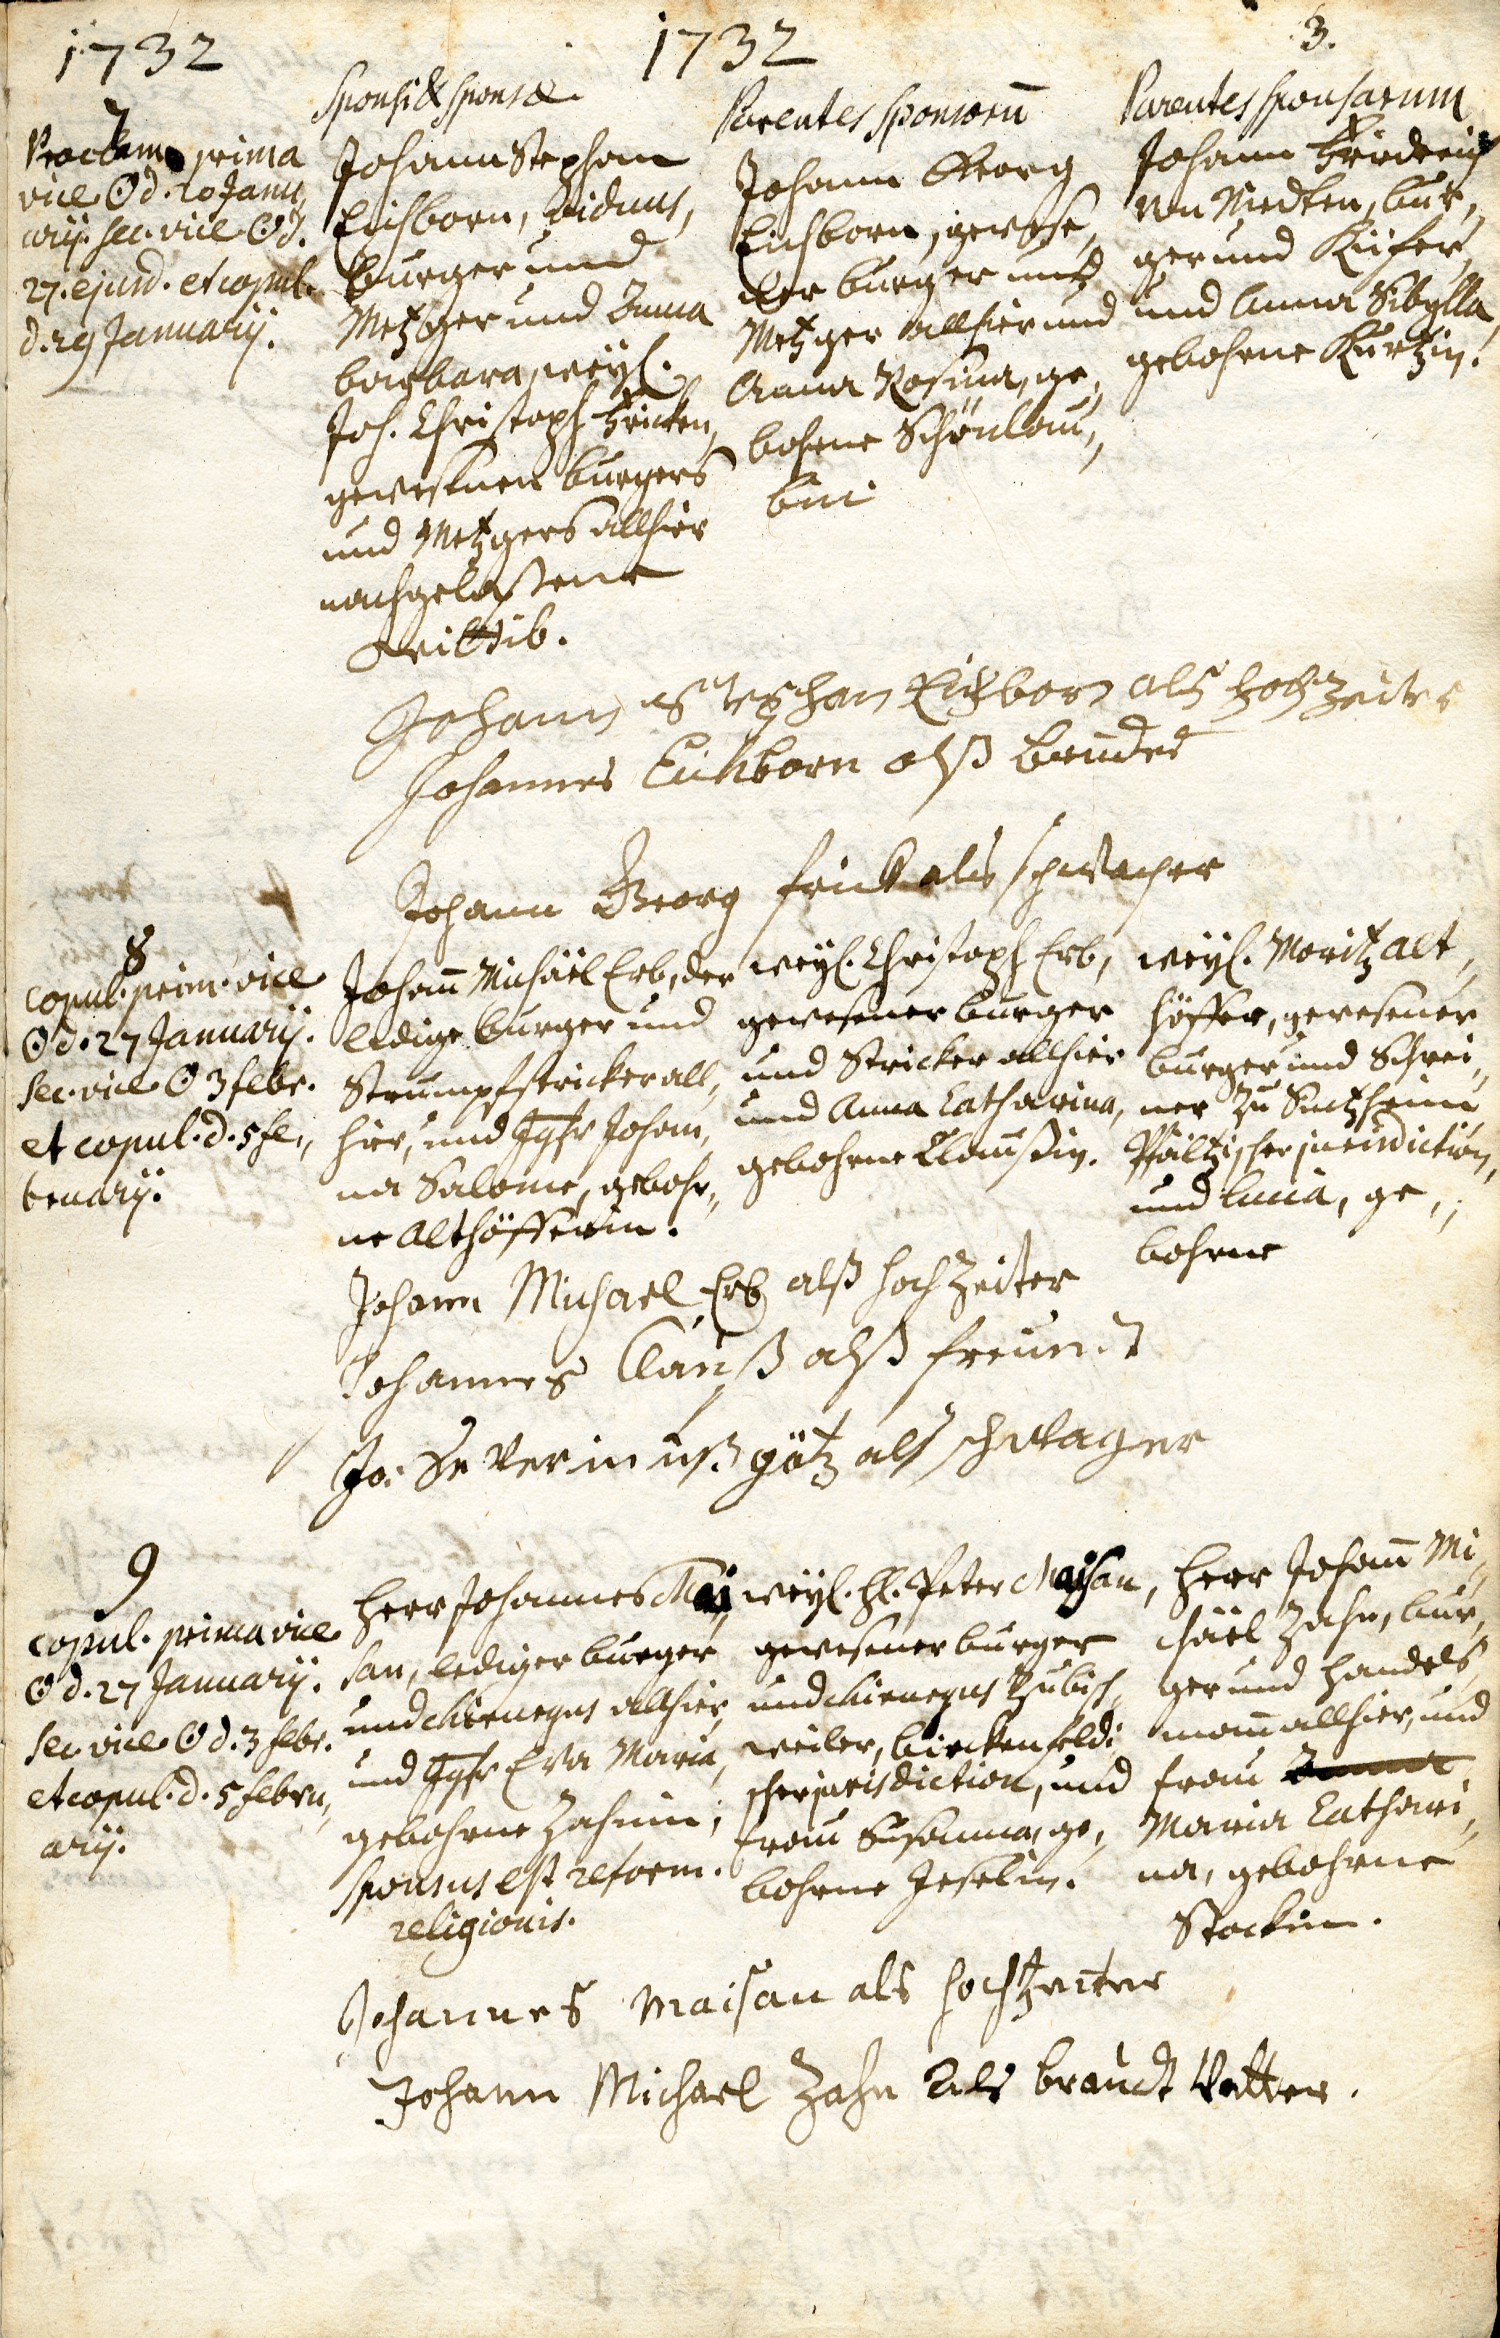 1732
1732
3.
Sponsi & Sponsæ
Parentes Sponsorū
Parentes Sponsarum
7
Proclam. prima
vice ⊙ d. 20 Janu,,
arij. sec. vice ⊙ d.
27. ejusd. et copul.
d. 29 Januarij.
Johann Stephan
Eichborn, viduus,
burger und
Metzger und Anna
barbara, weyl.
Joh. Christoph Fricken,
gewesenen burgers
und Metzgers allhier
nachgelaßene
Wittib.
Johann Georg
Eichborn, gewese,,
der burger und
Metzger allhier und
Anna Rosina, ge,,
bohrne Schönlau,,
bin
Johann Friderich
von Niedten, bur,,
ger und Küfer,
und Anna Sibylla,
gebohrne Kurtzin.
Johann Stephan Eichborn alß hochzeiter
Johannes Eichborn alß bruder
Johann Georg frick als schwacher
8
copul. prim. vice
⊙ d. 27 Januarij.
sec. vice ⊙ 3 febr.
et copul. d. 5 fe,,
bruarij.
Johañ Michäel Erb, der
ledige burger und
Strumpfstricker all,,
hier, und Jgfr Johan,,
na Salome, gebohr,,
ne Althöfferin.
weyl. Christoph Erb,
gewesener burger
und Stricker allhier
und Anna Catharina,
gebohrne Claußin.
weyl. Moritz Alt,,
höffer, gewesener
burger und Schrei,,
ner zu Sintzheim
Pfältzischer jurisdiction,
und Lucia, ge,,
bohrne
Johann Michael Erb alß hochzeiter
Johannes Clauß alß freundt
Jo. Severinuß götz als schwager
9
copul. prima vice
⊙ d. 27 Januarij.
sec. vice ⊙ d. 3 febr.
et copul. d. 5 febru,,
arij.
Herr Johannes Mai,,
san, lediger burger
und chirurgus allhier,
und Jgfr Eva Maria,
gebohrne Zahnin;
sponsus est reform.
religionis.
weyl. H. Peter Maisan,
gewesener burger
und chirurgus zu bisch,,
weiler, birckenfeldi,,
scher jurisdiction, und
frau Susanna, ge,,
bohrne Jeselin.
Herr Johañ Mi,,
chäel Zahn, bur,,
ger und handels,,
mañ allhier, und
frau Anna
Maria Cathari,,
na, gebohrne
Stockin.
Johannes Maisan als hochzeiter
Johann Michael Zahn als braudt Vatter.